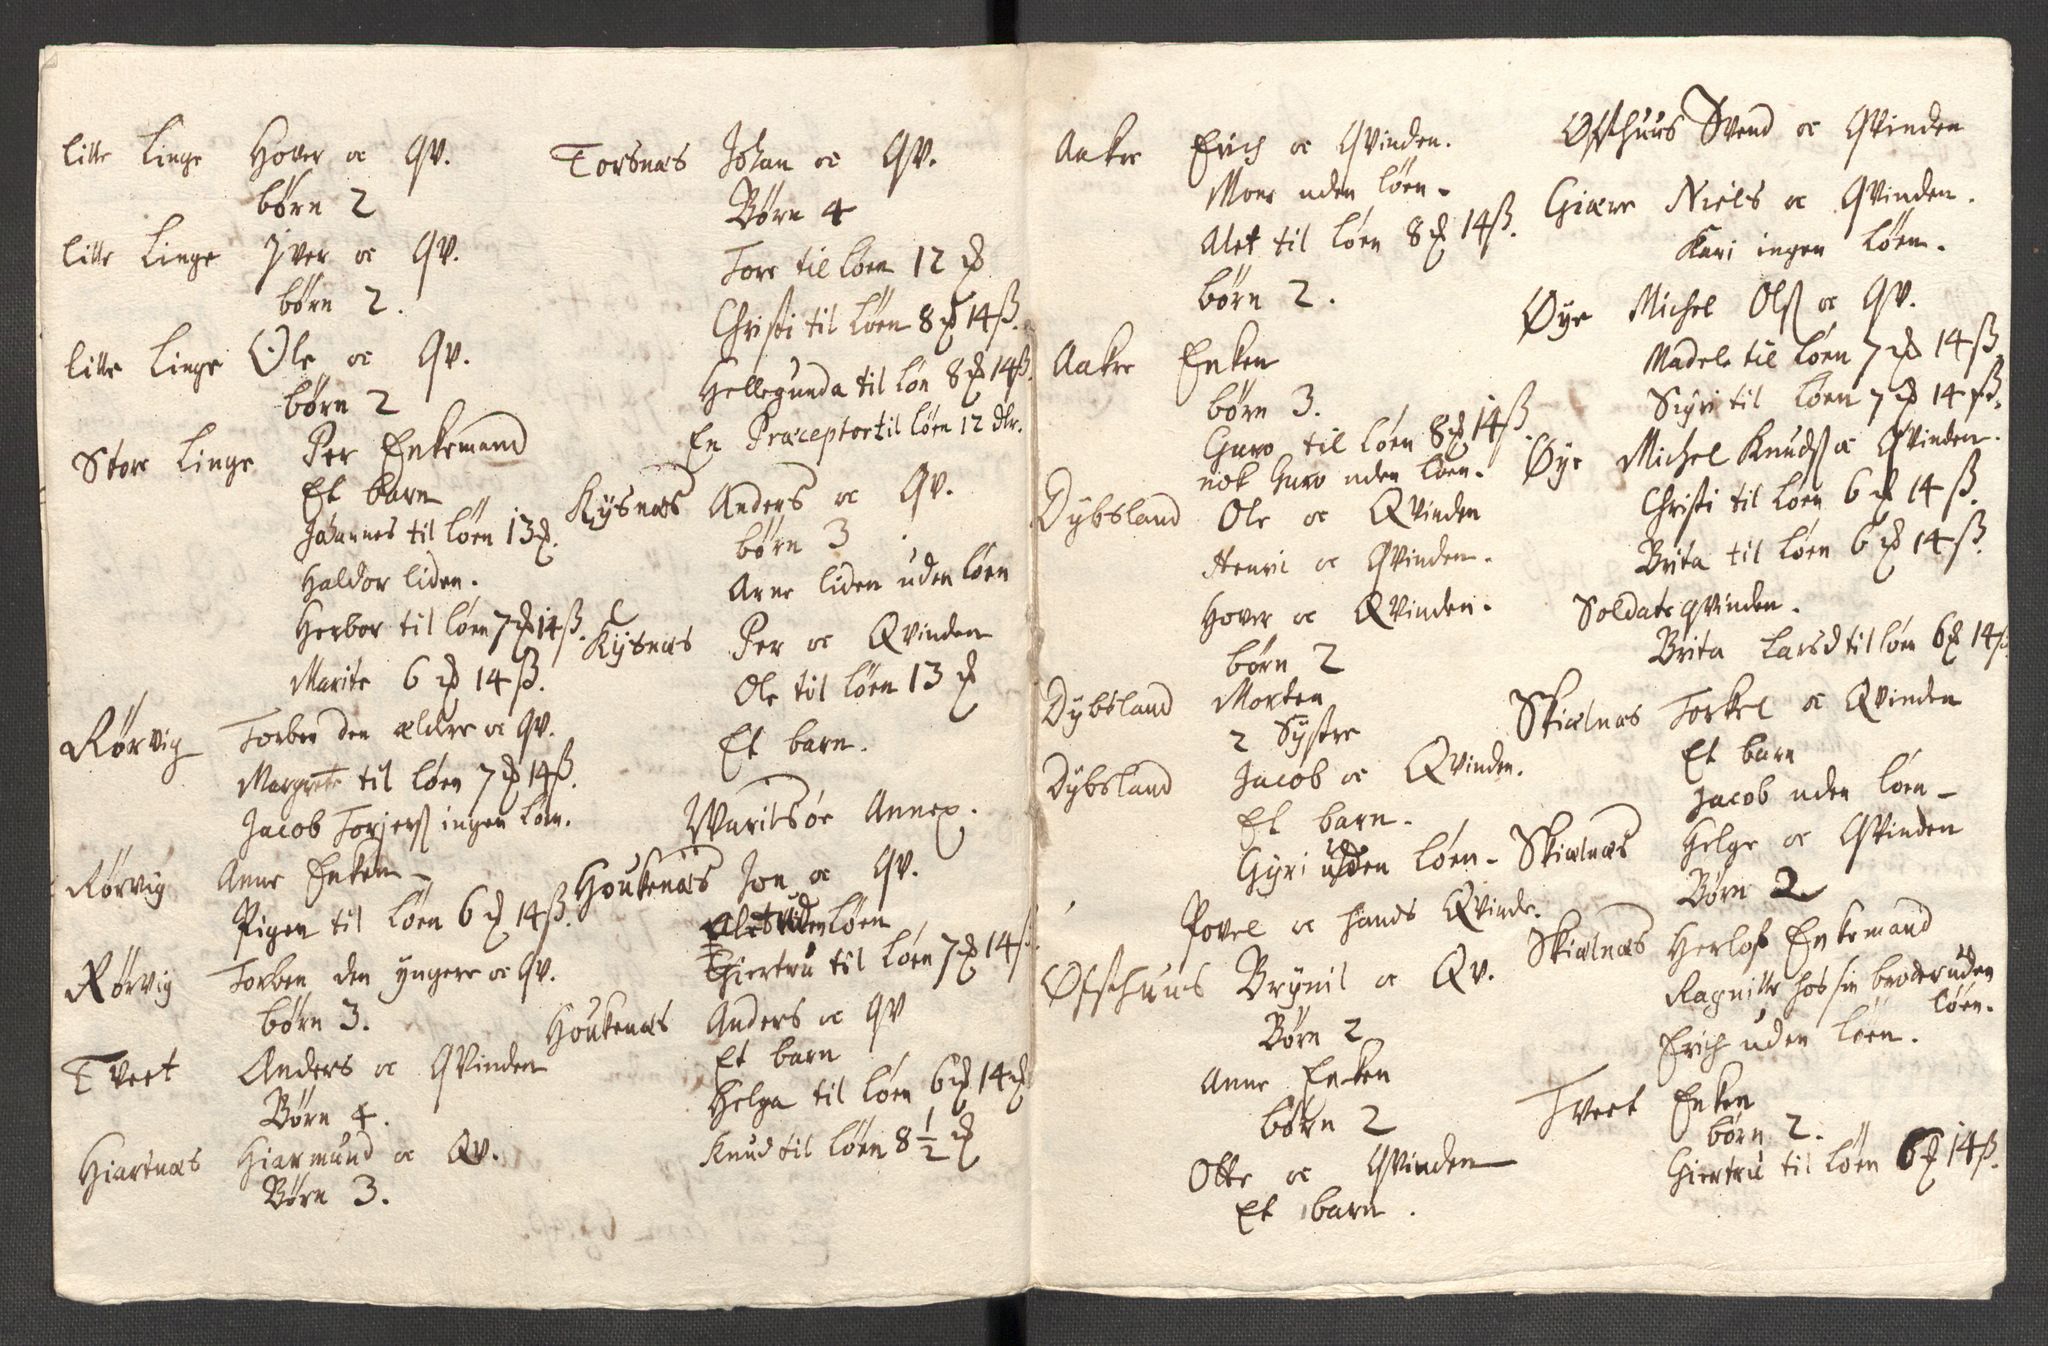 litle Linge Hover oc Qv.
børn 2
litle Linge Iver oc Qv.
børn 2.
litle Linge Ole oc Qv.
børn 2
Store Linge Per Enkemand
Et barn
Johannes til løen 13 ꝸ.
Haldor liden.
Herbor til løen 7 ꝸ 14 ß.
Marite 6 ꝸ 14 ß.
Rørvig Torben den ældre oc Qv.
Margrete til løen 7 ꝸ 14 ß.
Jacob Torjerß ingen løen.
Rørvig Anne Enken
Pigen til løen 6 ꝸ 14 ß.
Rørvig Torben den yngere oc Qv.
børn 3.
Tvert Anders oc Qvinden
Børn 4.
Hiartnæs Hiarmund oc Qv.
Børn 3.
Torsnæs Johan oc Qv.
Børn 4
Tore til løen 12 ꝸ
Christi til løen 8 ꝸ 14 ß.
Hellegunda til løn 8 ꝸ 14 ß.
En Præceptor til løen 12 dlr.
Kysnæs Anders oc Qv.
børn 3
Arne liden uden løen
Kysnæs Per oc Qvinden
Ole til løen 13 ꝸ
Et barn.
Waritsøe Annex.
Houkenæs Jon oc Qv.
Alet uden løen
Giertru til løen 7 ꝸ 14 ß.
Houkenæs Anders oc Qv
Et barn
Helga til løen 6 ꝸ 14 ꝸ
Knud til løen 8 1/2 ꝸ
Aakre Erich oc Qvinden.
Moer uden løen.
Alet til løen 8 ꝸ 14 ß.
børn 2.
Aakre Enken
børn 3.
Guro til løen 8 ꝸ 14 ß.
nok Guro uden løen.
Dybsland Ole oc Qvinden
Henric oc Qvinden.
Hover oc Qvinden.
børn 2
Dybsland Morten
2 Systre
Dybsland Jacob oc Qvinden.
Et barn.
Gyri uden løen.
Povel oc hands Qvinde.
Ofsthuus Brynil oc Qv.
Børn 2
Anne Enken
børn 2
Otte oc Qvinden
Et barn.
Ofsthuus Svend oc Qvinden
Giære Niels oc Qvinden.
Kari ingen løen.
Øye Michel Olß oc Qv.
Madele til løen 7 ꝸ 14 ß
Siyri til løen 7 ꝸ 14 ß.
Øye Michel Knudß oc Qvinden.
Christi til løen 6 ꝸ 14 ß.
Brita til løen 6 ꝸ 14 ß.
Soldateqvinden.
Brita Larsd til løen 6 ꝸ 14 ß
Skiælnæs Torkel oc Qvinden
Et barn
Jacob uden løen.
Skiælnæs Helge oc Qvinden
Børn 2
Skiælnæs Herlof Enkemand
Ragnilte hos sin broder uden
løen.
Erich uden løen.
Tvert Enken
børn 2.
Giertru til løen 6 ꝸ 14 ß.